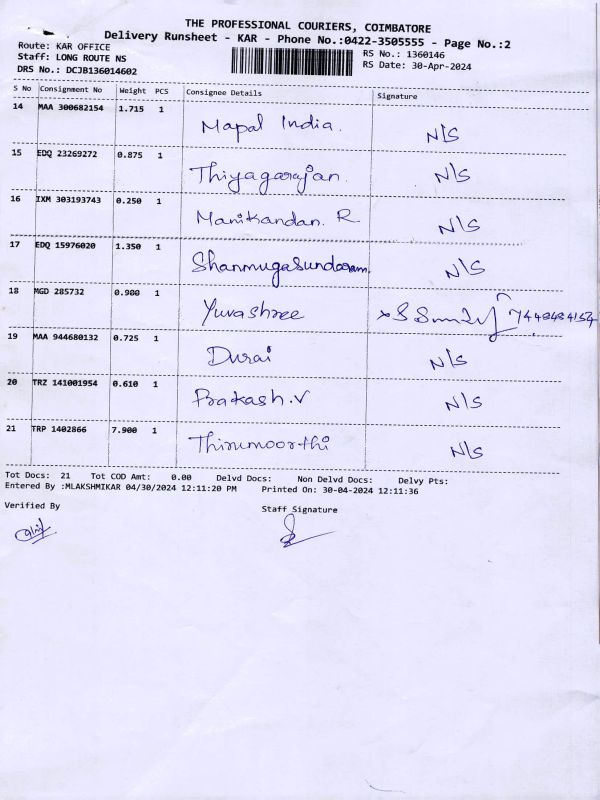 THE PROFESSIONAL COURIERS, COIMBATORE
Delivery Runsheet - KAR - Phone No.:0422-3505555 - Page No.:2
Route: KAR OFFICE RS No.: 1360146
Staff: LONG ROUTE NS RS Date: 30-Apr-2024
DRS No.: DCJB136014602
S No Consignment No Weight PCS Consignee Details Signature
14 MAA 300682154 1.715 1 Mapal India. N/S
15 EDQ 23269272 0.875 1 Thiyagarajan. N/S
16 IXM 303193743 0.250 1 Manikandan. R N/S
17 EDQ 15976020 1.350 1 Shanmugasundaram. N/S
18 MGD 285732 0.900 1 Yuvashree
19 MAA 944680132 0.725 1 Durai N/S
20 TRZ 141001954 0.610 1 Prakash.V N/S
21 TRP 1402866 7.900 1 Thirumoorthi N/S
Tot Docs: 21 Tot COD Amt: 0.00 Delvd Docs: Non Delvd Docs: Delvy Pts:
Entered By :MLAKSHMIKAR 04/30/2024 12:11:20 PM Printed On: 30-04-2024 12:11:36
Verified By Staff Signature